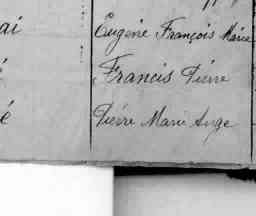 ai Eugène François Marie
é Francis Pierre
é Pierre Marie Ange